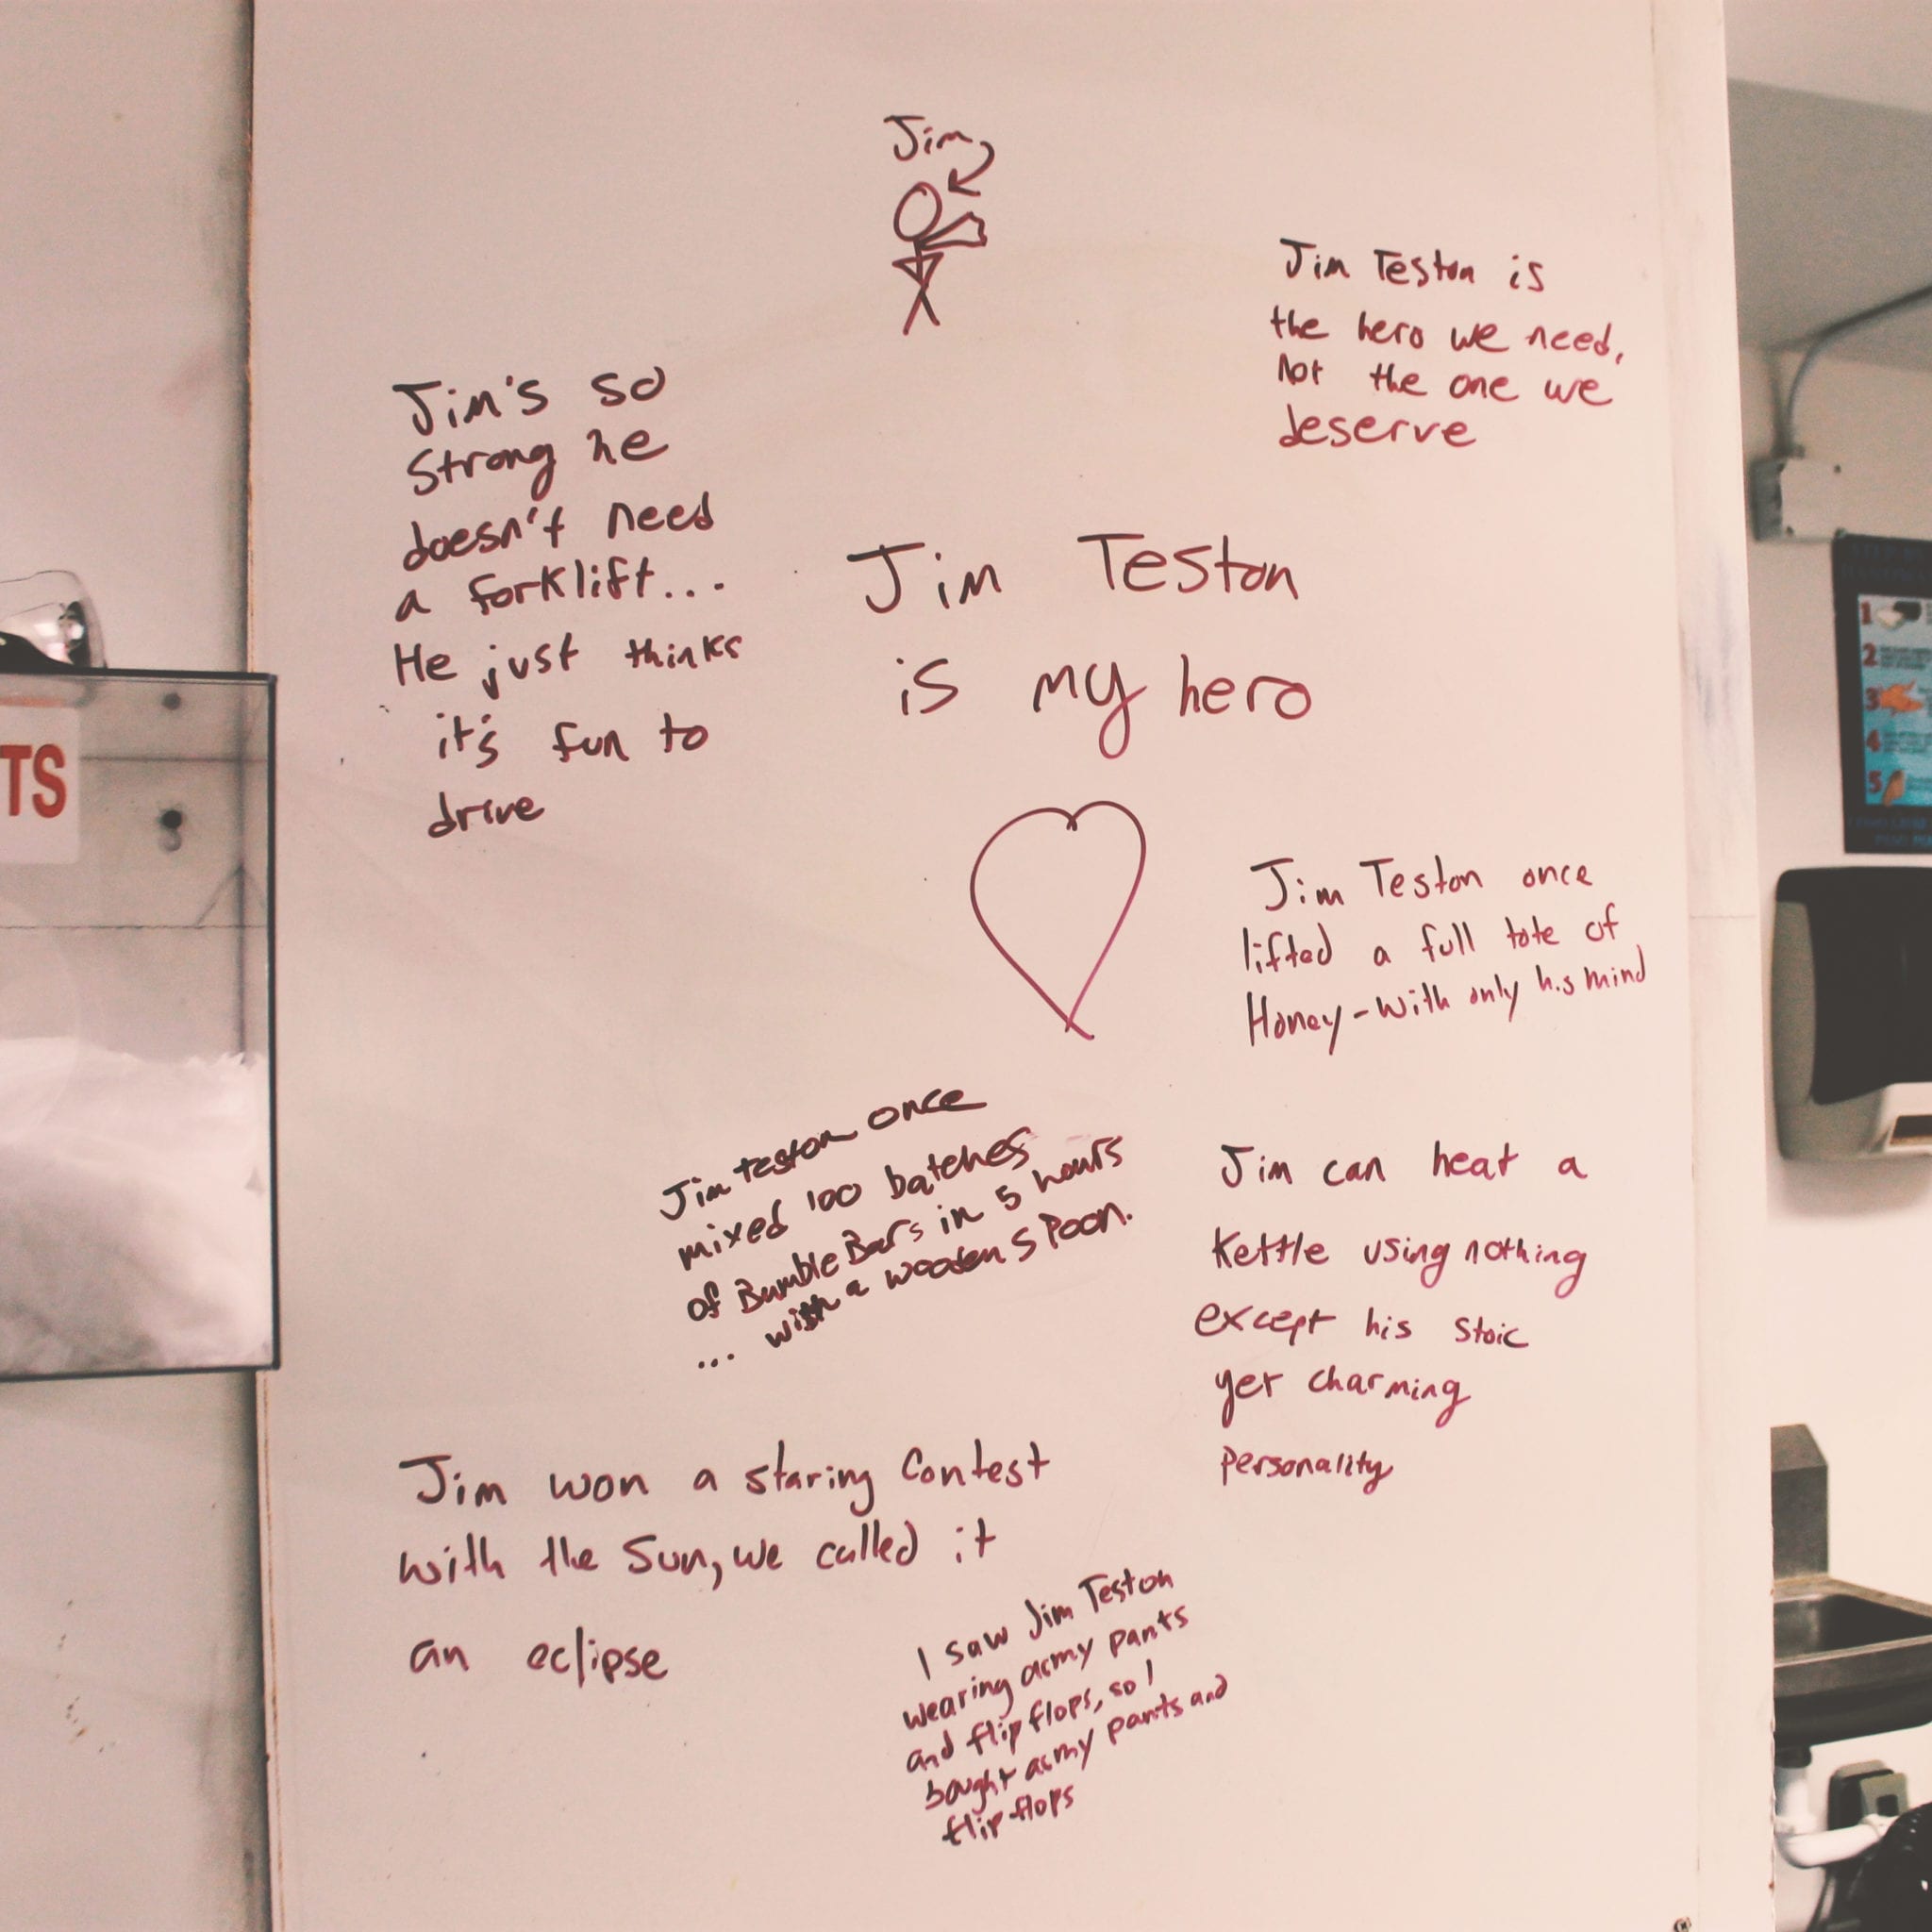 Jim
Jim Teston is
the hero we need,
Not the one we
deserve
Jim's so
Strong he
doesn't need
a forklift...
He just thinks
it's fun to
drive
Jim Teston
is my hero
TS
1
2
3
4
5
Jim Teston once
lifted a full tote of
Honey-with only his mind
Jim teston once
mixed 100 batches
of Bumble Bars in 5 hours
... with a wooden spoon.
Jim can heat a
Kettle using nothing
except his stoic
yet charming
personality
Jim won a staring contest
with the Sun, we called it
an eclipse
I saw Jim Teston
wearing army pants
and flip flops, so I
bought army pants and
flip flops